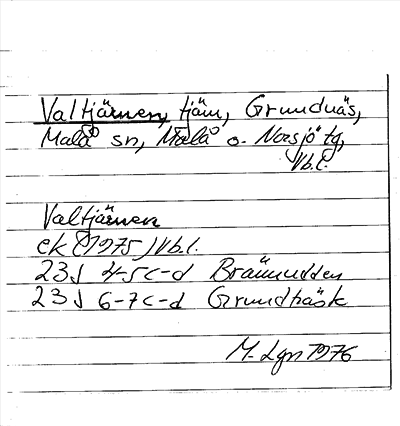 Valtjärnen, tjärn, Grundnäs,
Malå sn, Malå o. Norsjö tg,
Vb.l.
Valtjärnen
ek (1975) Vb.l.
23J 4-5c-d Brännudden
23J 6-7c-d Grundträsk
M. Lgn 1976